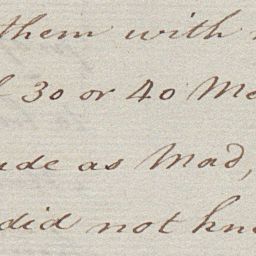 them with
30 or 40 Me
ade as Mad,
did not kn